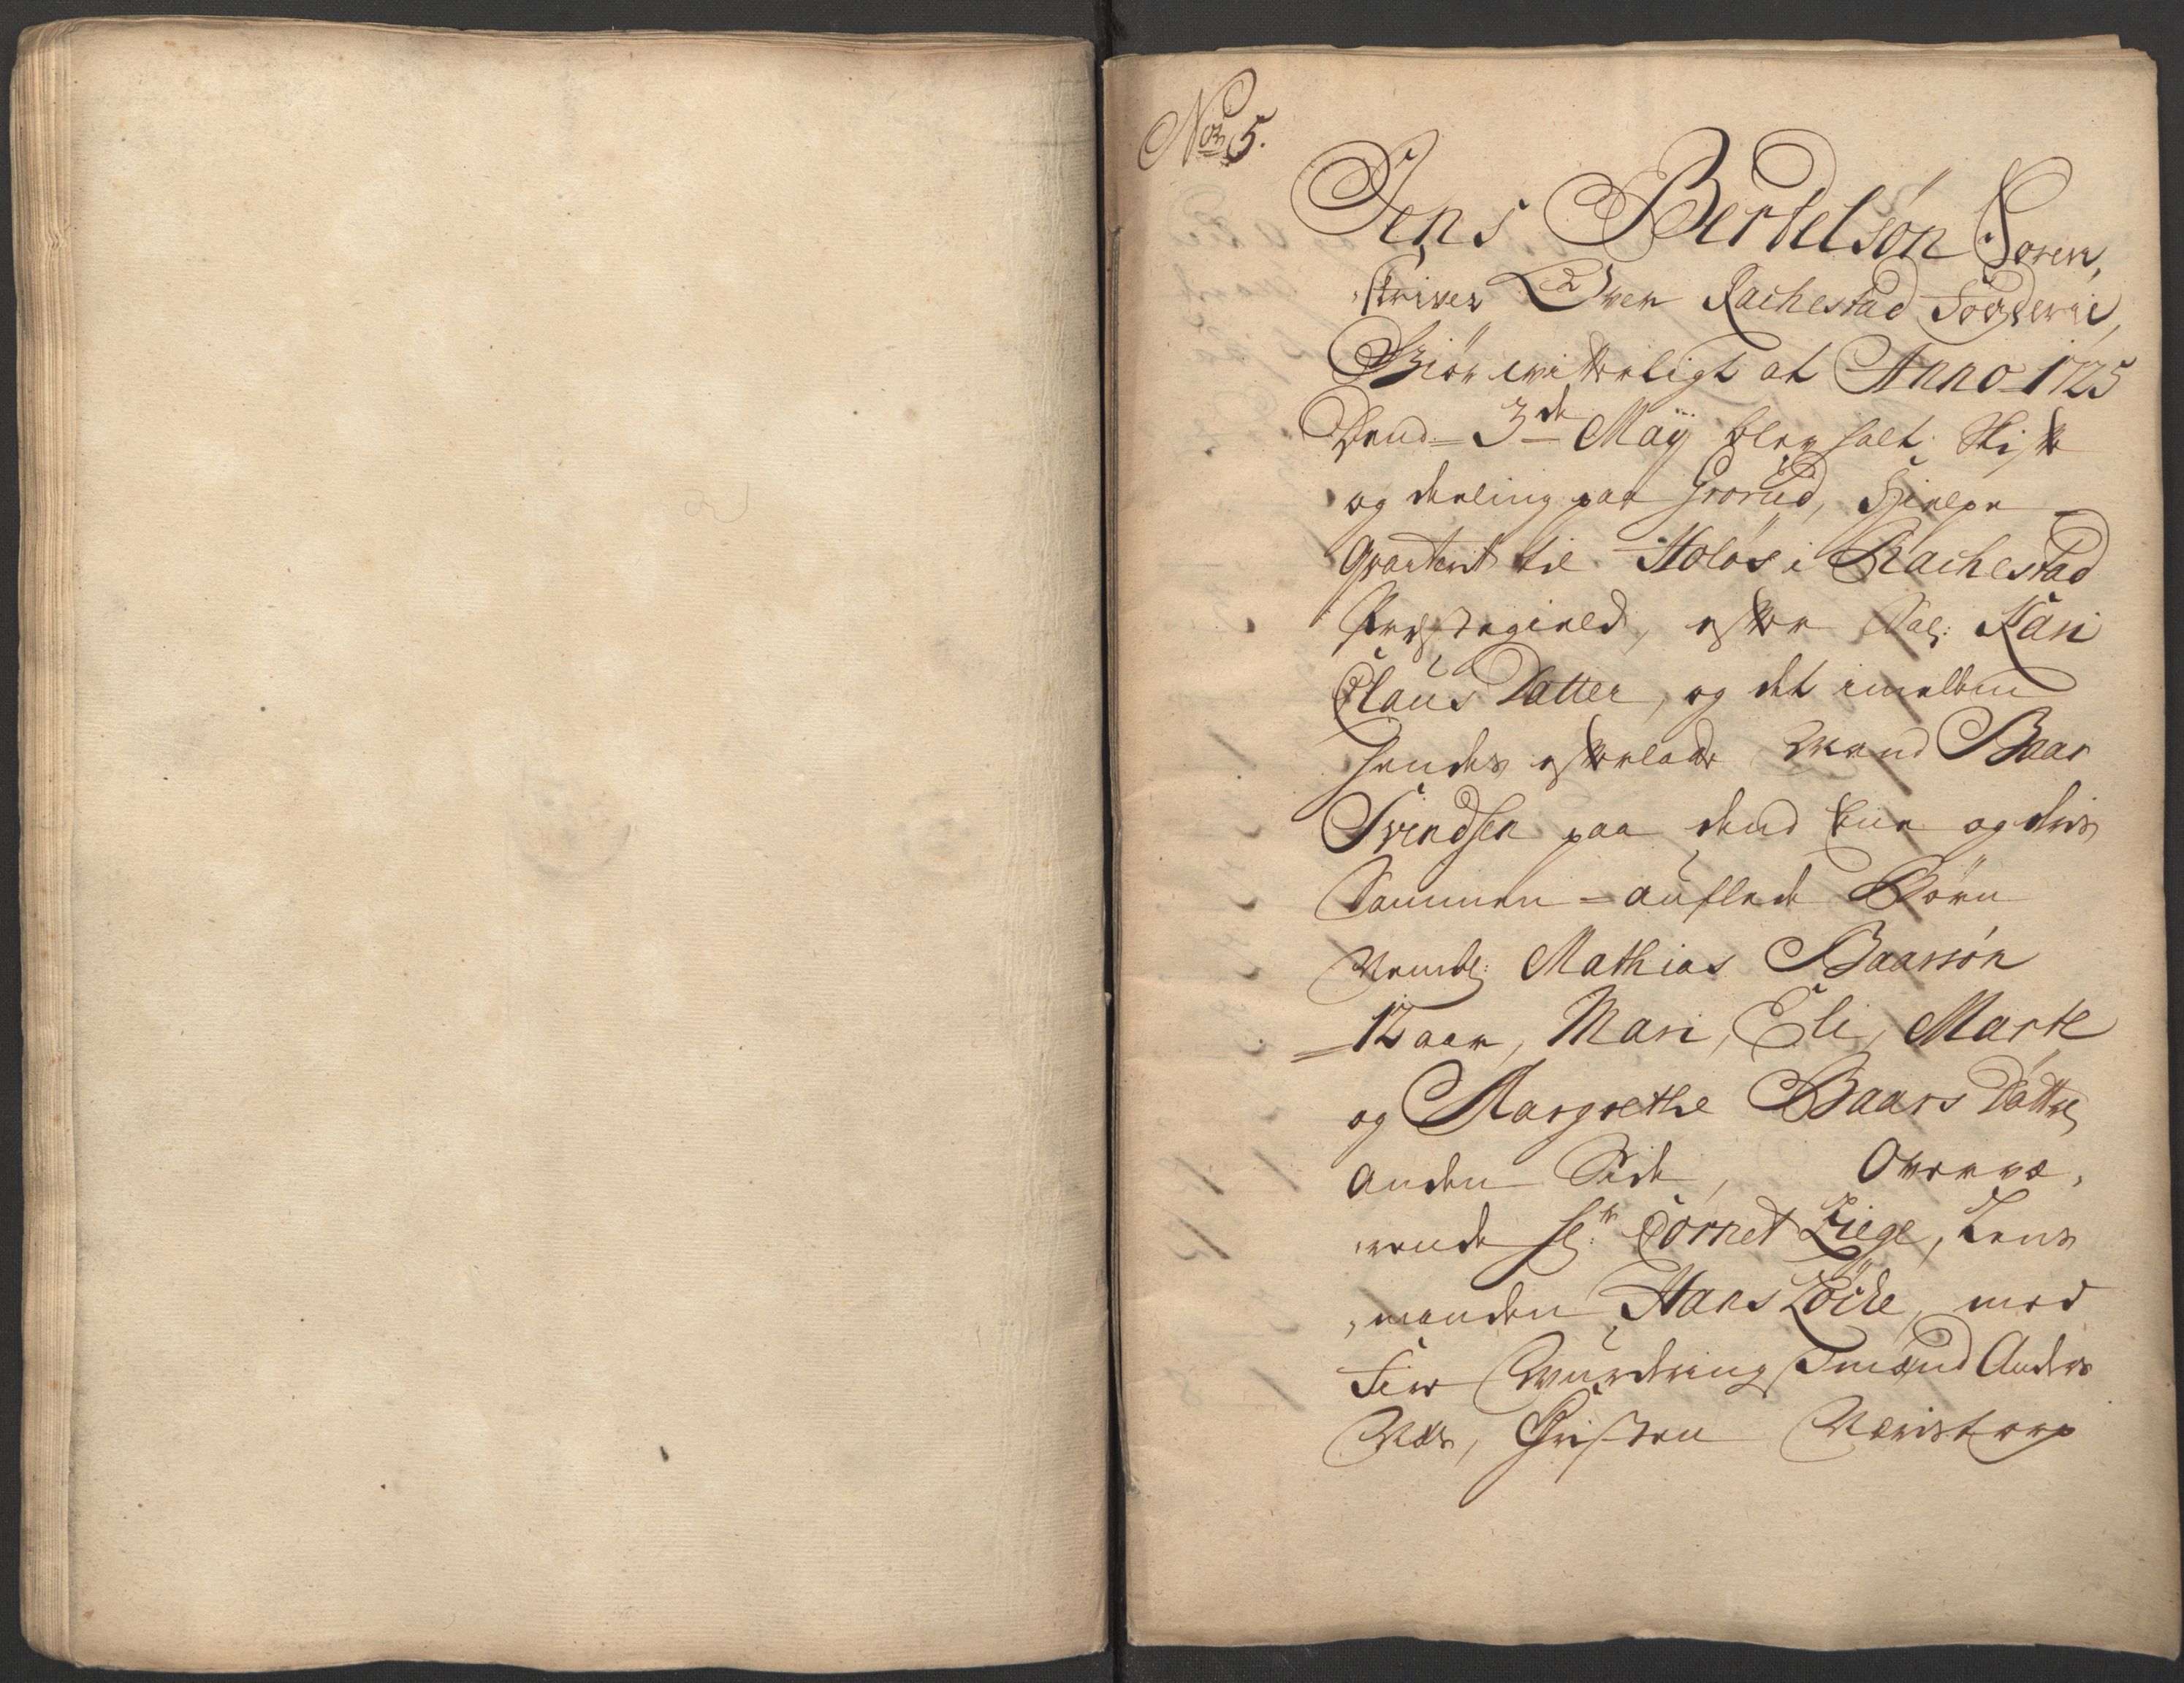 No 5.
Jens Bertelsøn Soren,
,skriver Over Rachestad Fogderie,
Giør witterligt at Anno 1725
Dend 3de Maÿ blev holt Skifte
og deeling paa Grorud, Hielpe
Qvarterit til Holøs i Rachestad
Prestegield, efter Sal: Kari
Claus Datter, og det imellem
hendes efterlatte Mand Baar
Svendsen paa dend Eene og deris
Sammen = auflede Børn
Nembl: Mathias Baarsøn
12 aar, Mari, Eli, Marte
og Margrethe Baars Døttre
anden Side, Overvæ,
,rende Sr: Cornet Ziege, Lens
,manden Hans Løcke, med
Fire Wurderings Mænd Anders
Næs, Christen